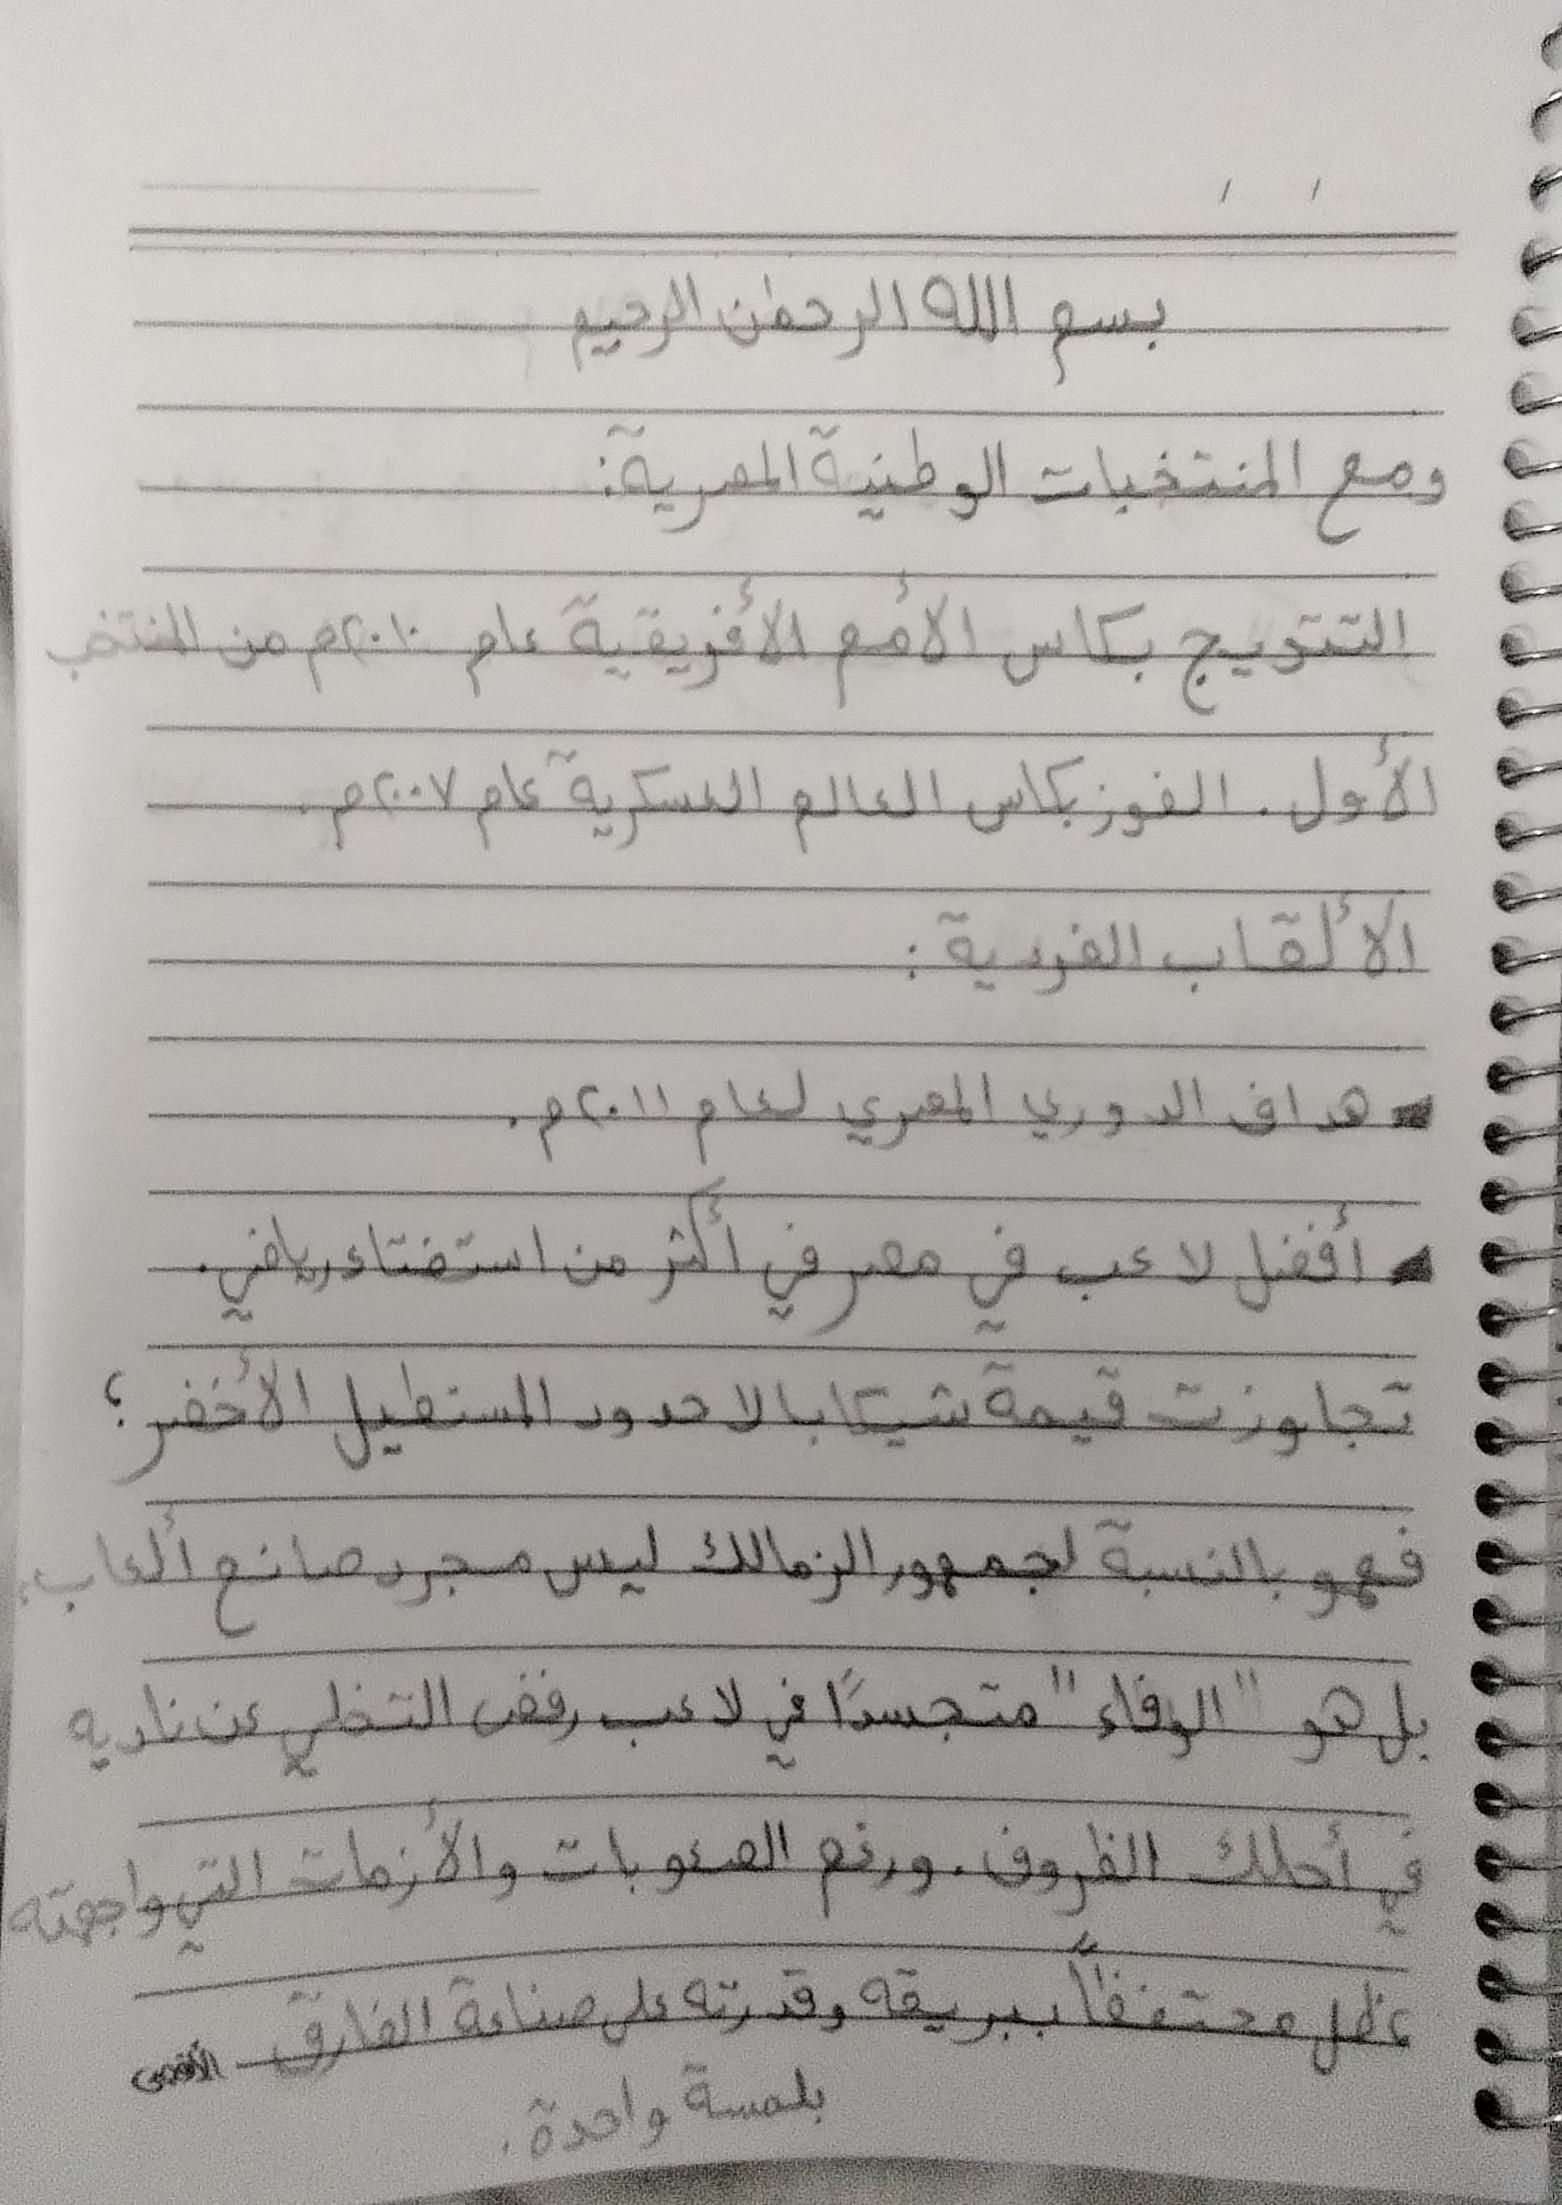 بسم الله الرحمٰن الرحيم
ومع المنتخبات الوطنية المصرية:
التتويج بكاس الأمم الأفريقية عام ٢٠١٠م من المنتخب
الأول. الفوز بكاس العالم العسكرية عام ٢٠٠٧م.
الألقاب الفردية:
- هداف الدوري المصري لعام ٢٠١١م.
- أفضل لاعب في مصر في أكثر من استفتاء رياضي.
تجاوزت قيمة شيكابالا حدود المستطيل الأخضر؛
فهو بالنسبة لجمهور الزمالك ليس مجرد صانع ألعاب،
بل هو "الوفاء" متجسدًا في لاعب رفض التخلي عن ناديه
في أحلك الظروف. ورغم الصعوبات والأزمات التي واجهته
ظل محتفظاً ببريقه وقدرته على صناعة الفارق
بلمسة واحدة.
الأقصى